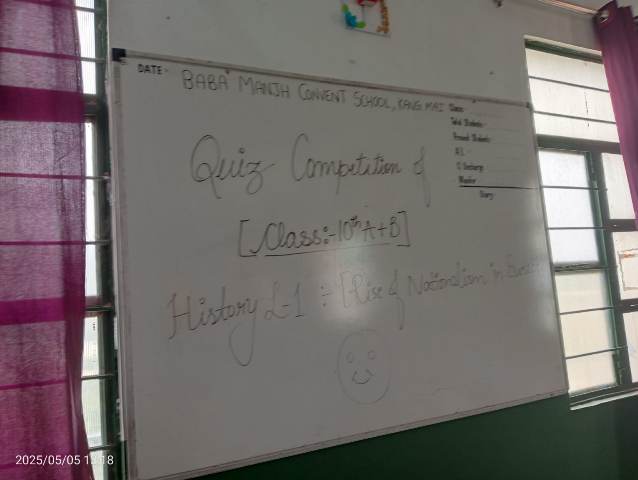 DATE:-
BABA MANJH CONVENT SCHOOL, KANG MAI
Class:
Total Students:
Present Students:
Monitor
Diary
Quiz Competition of
[Class:-10th A+B]
History L-1 :- [Rise of Nationalism in
2025/05/05